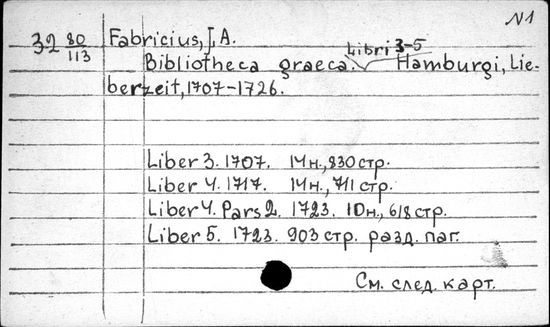 N1
32 80/113 Fabricius, J. A.
Libri 3-5
Bibliotheca graeca. Hamburgi, Lie-
berzeit, 1707-1726.
Liber 3. 1707. 14н., 830 стр.
Liber 4. 1717. 14н., 711 стр.
Liber 4. Pars 2. 1723. 10н., 618 стр.
Liber 5. 1723. 903 стр. разд. паг.
См. след. карт.